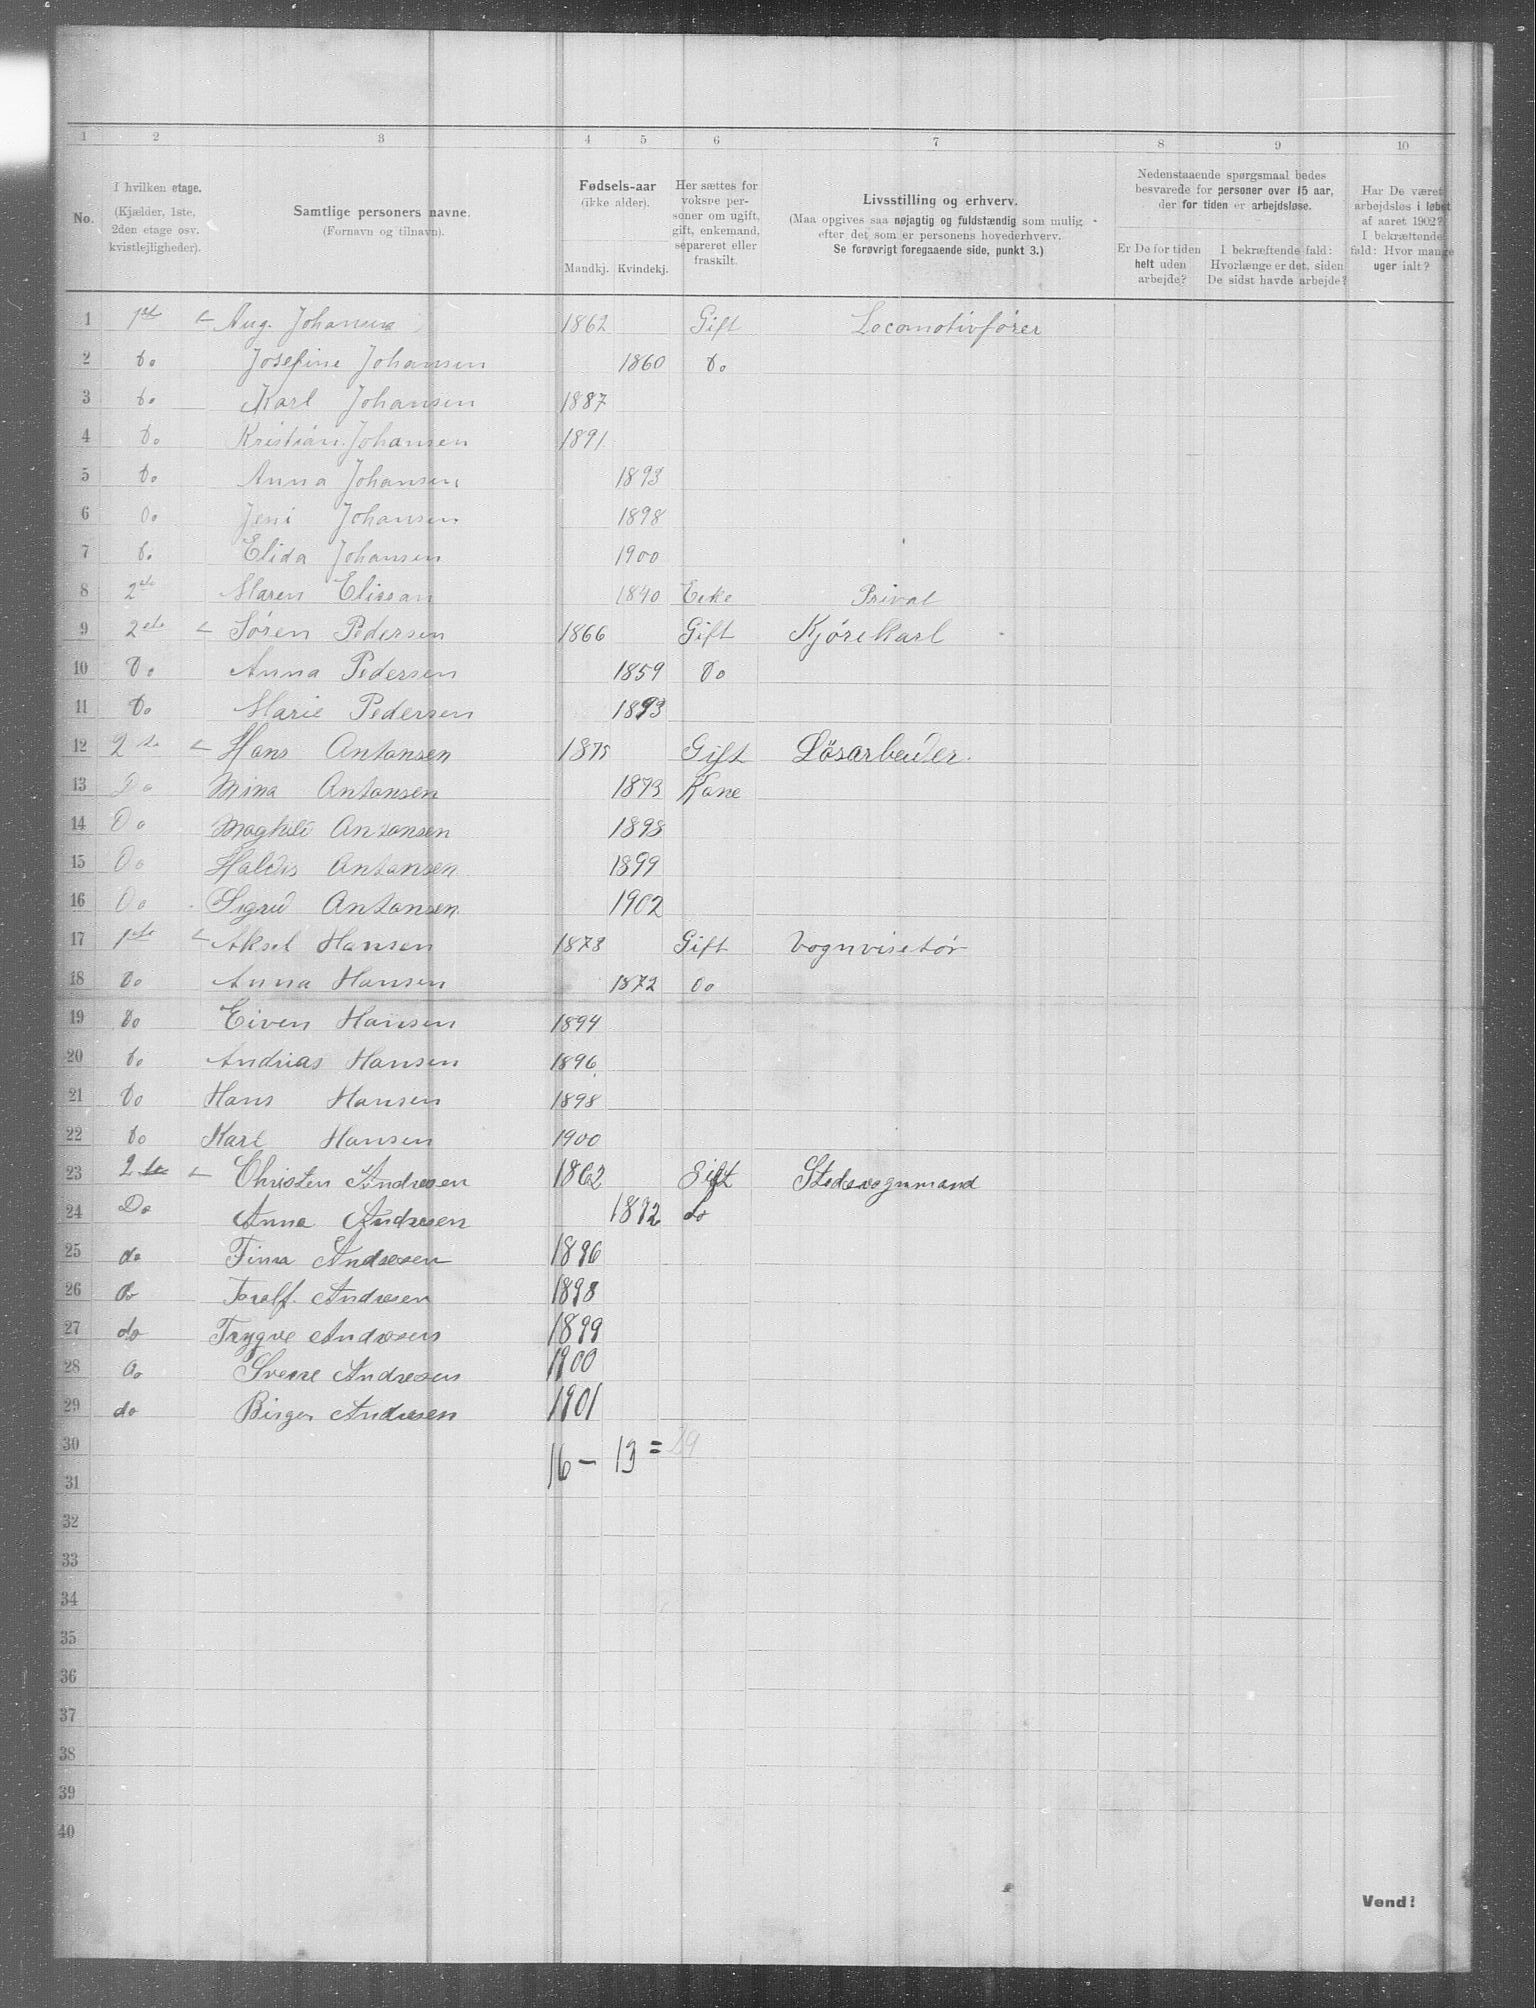 1 2 3 4 5 6 7 8 9 10
No. I hvilken etage. (Kjælder, 1ste, 2den etage osv. kvistlejligheder). Samtlige personers navne. (Fornavn og tilnavn). Fødsels-aar (ikke alder). Mandkj. Kvindekj. Her sættes for voksne personer om ugift, gift, enkemand, separeret eller fraskilt. Livsstilling og erhverv. (Maa opgives saa nøjagtig og fuldstændig som mulig efter det som er personens hovederhverv. Se forøvrigt foregaaende side, punkt 3.) Nedenstaaende spørgsmaal bedes besvarede for personer over 15 aar, der for tiden er arbejdsløse. Er De for tiden helt uden arbejde? I bekræftende fald: Hvorlænge er det, siden De sidst havde arbejde? Har De været arbejdsløs i løbet af aaret 1902? I bekræftende fald: Hvor mange uger ialt?
1 1ste Aug. Johansen 1862 Gift Locomotivfører
2 Do Josefine Johansen 1860 Do
3 Do Karl Johansen 1887
4 Do Kristian Johansen 1891
5 Do Anna Johansen 1893
6 Do Jeni Johansen 1898
7 Do Elida Johansen 1900
8 2den Maren Elissan 1840 Enke Privat
9 2den Søren Pedersen 1866 Gift Kjørekarl
10 Do Anna Pedersen 1859 Do
11 Do Marie Pedersen 1893
12 2de Hans Antonsen 1875 Gift Lösarbeider.
13 Do Mina Antonsen 1873 Kone
14 Do Maghild Antonsen 1898
15 Do Haldis Antonsen 1899
16 Do Sigrid Antonsen 1902
17 1ste Aksel Hansen 1873 Gift Vognvisetør
18 Do Anna Hansen 1872 Do
19 Do Eiven Hansen 1894
20 Do Andrias Hansen 1896
21 Do Hans Hansen 1898
22 Do Karl Hansen 1900
23 2de Christen Andresen 1862 Gift Stedsvognmand
24 Do Anna Andresen 1872 do
25 do Fima Andresen 1896
26 do Toralf Andresen 1898
27 do Trygve Andresen 1899
28 Do Sverre Andresen 1900
29 do Birger Andresen 1901
30
16 - 13 = 29
31
32
33
34
35
36
37
38
39
40
Vend!